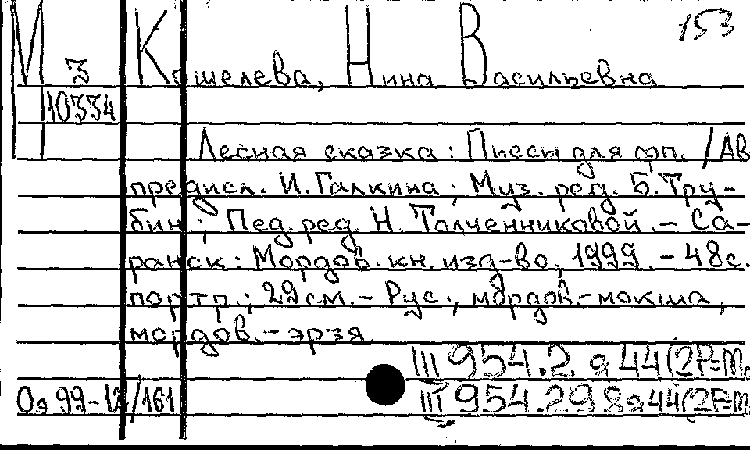 153
М 3 Кошелева, Нина Васильевна
10334
Лесная сказка : Пьесы для фп. / АВ
предисл. И. Галкина ; Муз. ред. Б. Тру-
бин ; Пед. ред. Н. Толченниковой. - Са-
ранск : Мордов. кн. изд-во, 1999. - 48с.
портр. ; 29см. - Рус., мордов.-мокша,
мордов.-эрзя
III 954.2 я 44(2Р-М
Оя 99-12/161 III 954.29 8я44(2Р-М